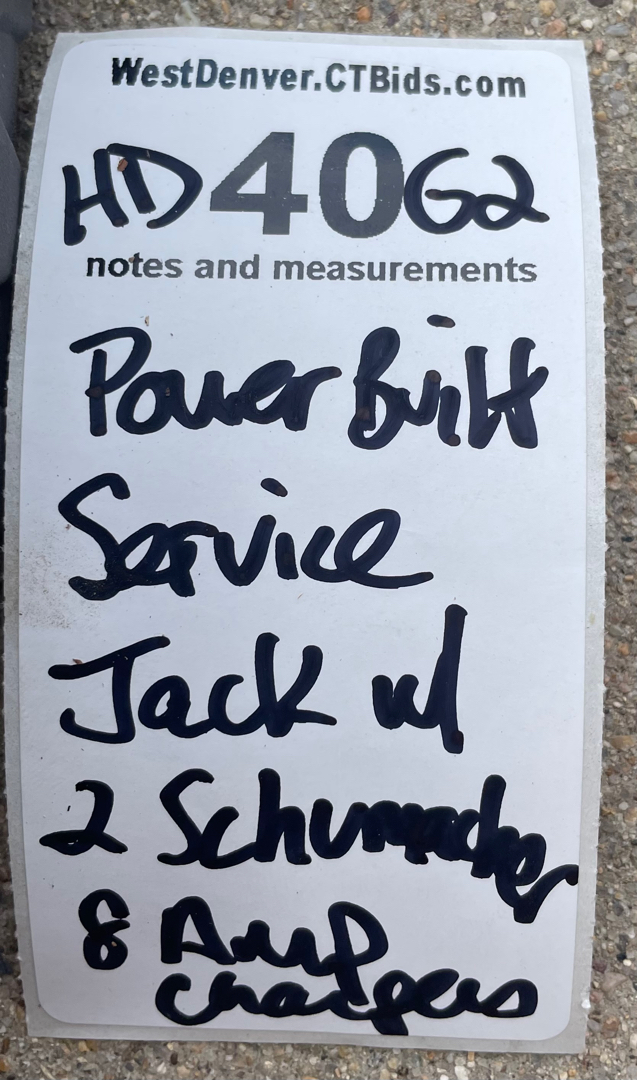 WestDenver.CTBids.com
HD 40 G2
notes and measurements
Power Built
Service
Jack w/
2 Schumacher
8 Amp
chargers